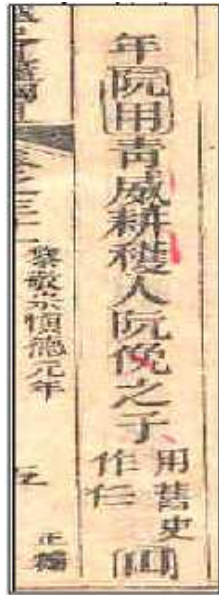 年阮用青威耕穫人阮俛之子
用舊史
作仁
四
黎敬宗慎德元年
五
正編